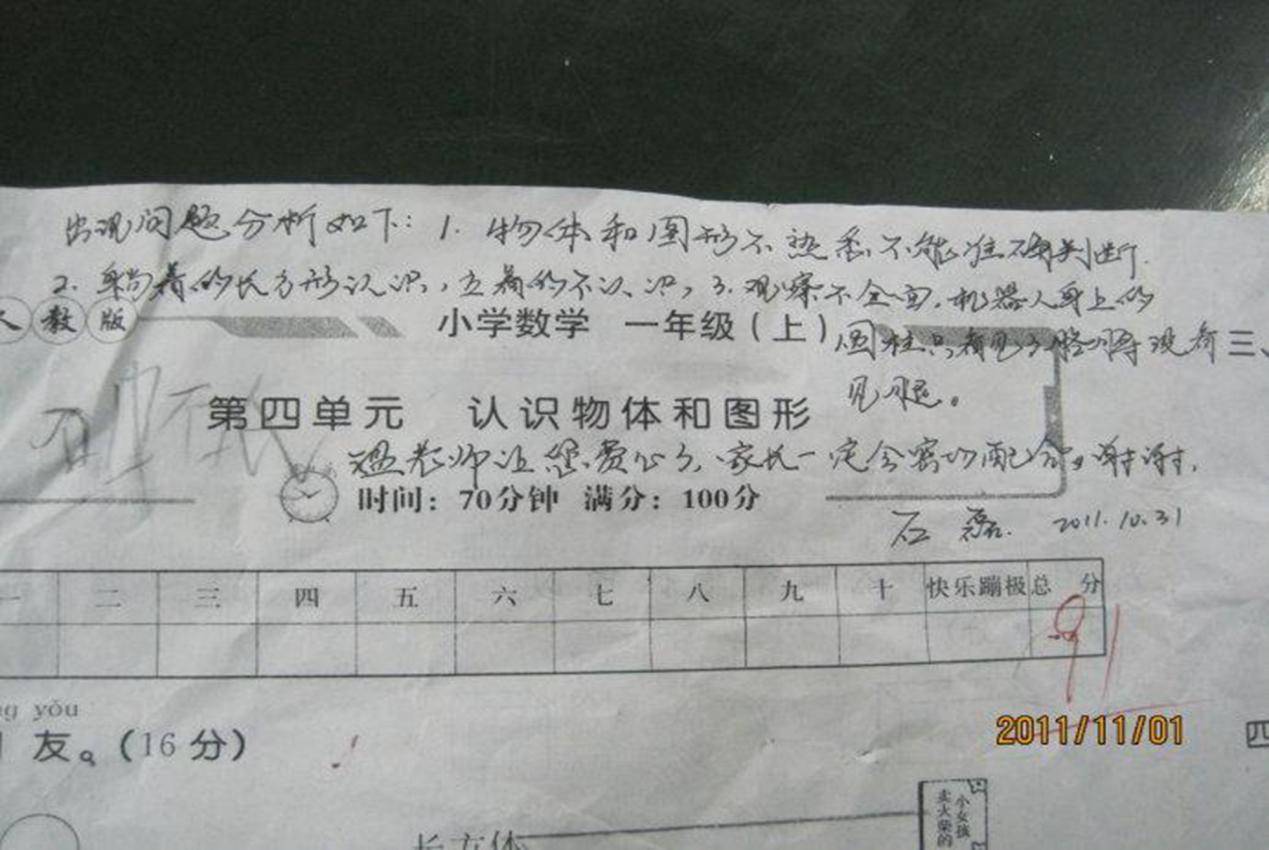 出现问题分析如下：1. 物体和图形不熟悉不能准确判断.
2. 躺着的长方形认识，立着的不认识，3. 观察不全面，机器人身上的
教版
小学数学 一年级（上）
圆柱只看见了胳膊没看
三、
见腿。
第四单元 认识物体和图形
温老师让您费心了，家长一定会密切配合。谢谢.
时间：70分钟 满分：100分
石磊. 2011.10.31
一 二 三 四 五 六 七 八 九 十 快乐蹦极 总分
91
yǒu
友。（16分）
2011/11/01
四
小女孩
卖火柴的
长方体